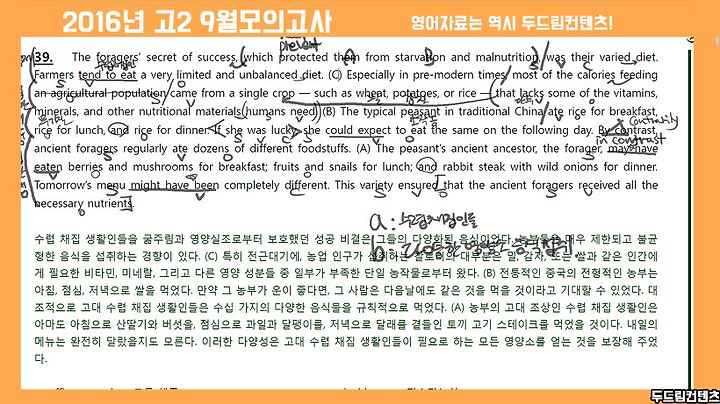 2016년 고2 9월모의고사
영어자료는 역시 두드림컨텐츠!
prevent
39. The foragers' secret of success, which protected them from starvation and malnutrition, was their varied diet.
Farmers tend to eat a very limited and unbalanced diet. (C) Especially in pre-modern times, most of the calories feeding
an agricultural population came from a single crop — such as wheat, potatoes, or rice — that lacks some of the vitamins,
minerals, and other nutritional materials humans need. (B) The typical peasant in traditional China ate rice for breakfast,
rice for lunch, and rice for dinner. If she was lucky, she could expect to eat the same on the following day. By contrast,
in contrast
ancient foragers regularly ate dozens of different foodstuffs. (A) The peasant's ancient ancestor, the forager, may have
eaten berries and mushrooms for breakfast; fruits and snails for lunch; and rabbit steak with wild onions for dinner.
Tomorrow's menu might have been completely different. This variety ensured that the ancient foragers received all the
necessary nutrients.
a:
b:
수렵 채집 생활인들을 굶주림과 영양실조로부터 보호했던 성공 비결은 그들의 다양화된 음식이었다. 농부들은 매우 제한되고 불균
형한 음식을 섭취하는 경향이 있다. (C) 특히 전근대기에, 농업 인구가 섭취하는 칼로리의 대부분은 밀, 감자, 또는 쌀과 같은 인간에
게 필요한 비타민, 미네랄, 그리고 다른 영양 성분들 중 일부가 부족한 단일 농작물로부터 왔다. (B) 전통적인 중국의 전형적인 농부는
아침, 점심, 저녁으로 쌀을 먹었다. 만약 그 농부가 운이 좋다면, 그 사람은 다음날에도 같은 것을 먹을 것이라고 기대할 수 있었다. 대
조적으로 고대 수렵 채집 생활인들은 수십 가지의 다양한 음식물을 규칙적으로 먹었다. (A) 농부의 고대 조상인 수렵 채집 생활인은
아마도 아침으로 산딸기와 버섯을, 점심으로 과일과 달팽이를, 저녁으로 달래를 곁들인 토끼 고기 스테이크를 먹었을 것이다. 내일의
메뉴는 완전히 달랐을지도 모른다. 이러한 다양성은 고대 수렵 채집 생활인들이 필요로 하는 모든 영양소를 얻는 것을 보장해 주었
다.
두드림컨텐츠